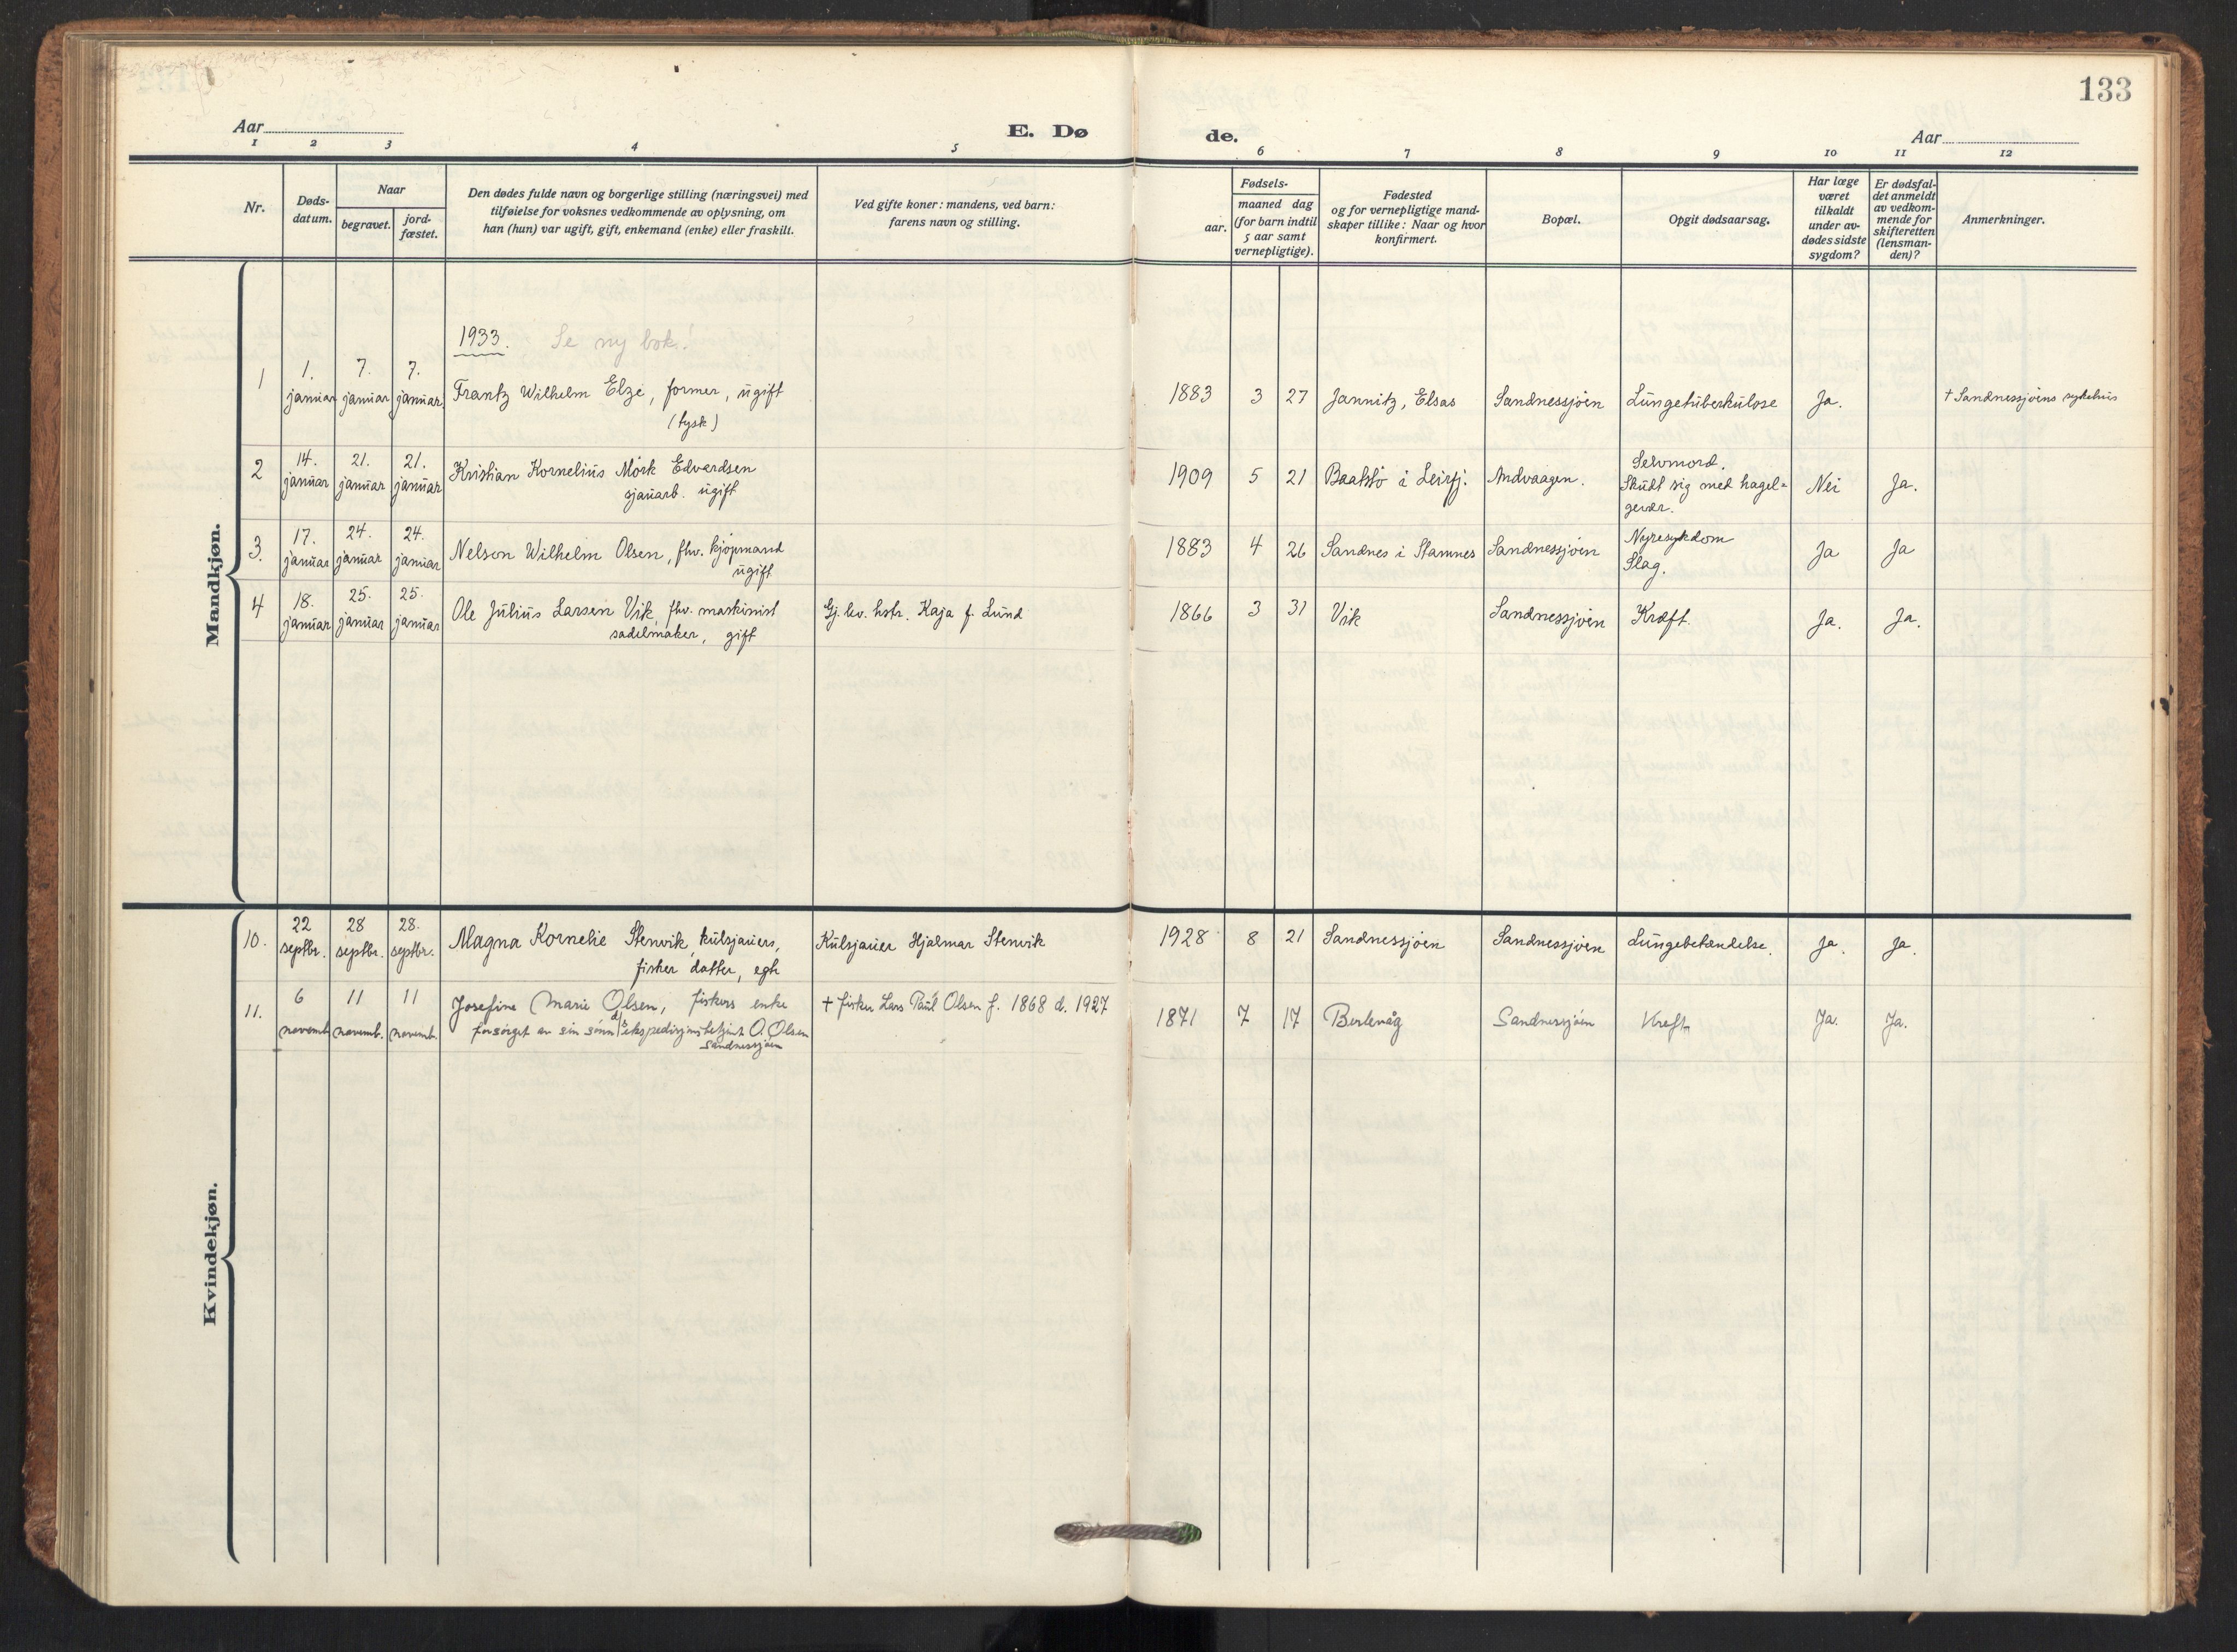 133
Aar
E. Dø
de.
Aar
1 2 3 4 5 6 7 8 9 10 11 12
Nr.
Døds-
datum.
Naar
begravet.
jord-
fæstet.
Den dødes fulde navn og borgerlige stilling (næringsvei) med
tilføielse for voksnes vedkommende av oplysning, om
han (hun) var ugift, gift, enkemand (enke) eller fraskilt.
Ved gifte koner: mandens, ved barn:
farens navn og stilling.
Fødsels-
aar.
maaned dag
(for barn indtil
5 aar samt
vernepligtige).
Fødested
og for vernepligtige mand-
skaper tillike: Naar og hvor
konfirmert.
Bopæl.
Opgit dødsaarsag.
Har læge
været
tilkaldt
under av-
dødes sidste
sygdom?
Er dødsfal-
det anmeldt
av vedkom-
mende for
skifteretten
(lensman-
den)?
Anmerkninger.
Mandkjøn.
1933. Se ny bok!
1 1. januar 7. januar 7. januar. Frantz Wilhelm Elze, former, ugift
(tysk)
1883 3 27 Jannitz, Elsas Sandnessjøen Lungetuberkulose Ja. † Sandnessjøens sykehus
2 14. januar 21. januar 21. januar Kristian Kornelius Mørk Edvardsen
sjauarb. ugift
1909 5 21 Baatstø i Leirfj. Andvaagen. Selvmord.
Skudt sig med hagel=
gevær.
Nei Ja.
3. 17. januar 24. januar 24. januar Nelson Wilhelm Olsen, fhv. kjøpmand
ugift
1883 4 26 Sandnes i Stamnes Sandnessjøen Nyresykdom
Slag.
Ja Ja
4 18. januar 25. januar 25. januar Ole Julius Larsen Vik, fhv. maskinist
sadelmaker, gift
Gj. lev. hstr. Kaja f. Lund
1866 3 31 Vik Sandnessjøen Kræft. Ja. Ja.
Kvindekjøn.
10. 22 septbr. 28 septbr. 28. septbr. Magna Kornelie Stenvik, kulsjauers,
fisker datter, egte
Kulsjauer Hjalmar Stenvik
1928 8 21 Sandnessjøen Sandnessjøen Lungebetændelse. Ja. Ja.
11. 6 novemb. 11 novemb. 11 novemb. Josefine Marie Olsen, fiskers enke
forsørget av sin sønn d/s ekspedisjonsbetjent O. Olsen
Sandnessjøen
† fisker Lars Paul Olsen f. 1868 d. 1927
1871 7 17 Berlevåg Sandnessjøen Kreft Ja. Ja.